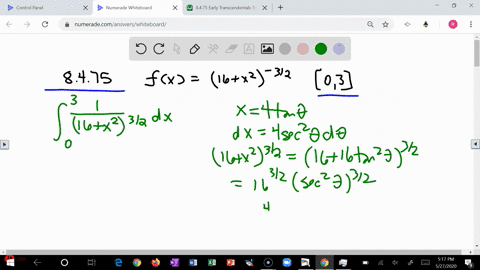 Control Panel
Numerade Whiteboard
8.4.75 Early Transcendentals
numerade.com/answers/whiteboard/
8.4.75 f(x) = (16+x²)^-3/2 [0,3]
∫₀³ 1/(16+x²)^3/2 dx
x = 4tanθ
dx = 4sec²θdθ
(16+x²)^3/2 = (16+16tan²θ)^3/2
= 16^3/2 (sec²θ)^3/2
4
5:17 PM
5/27/2020